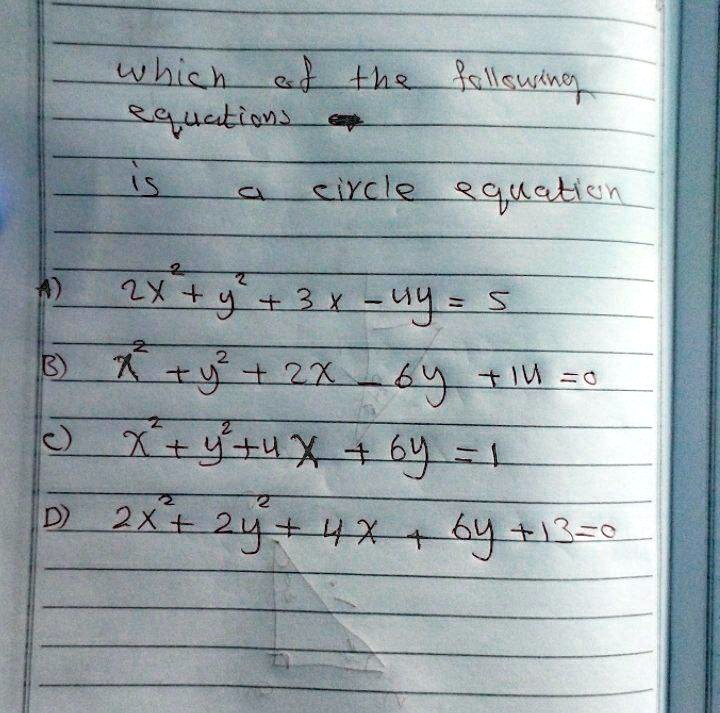 which of the following
equations
is a circle equation
A) 2x² + y² + 3x - 4y = 5
B) x² + y² + 2x - 6y + 14 = 0
C) x² + y² + 4x + 6y = 1
D) 2x² + 2y² + 4x + 6y + 13 = 0